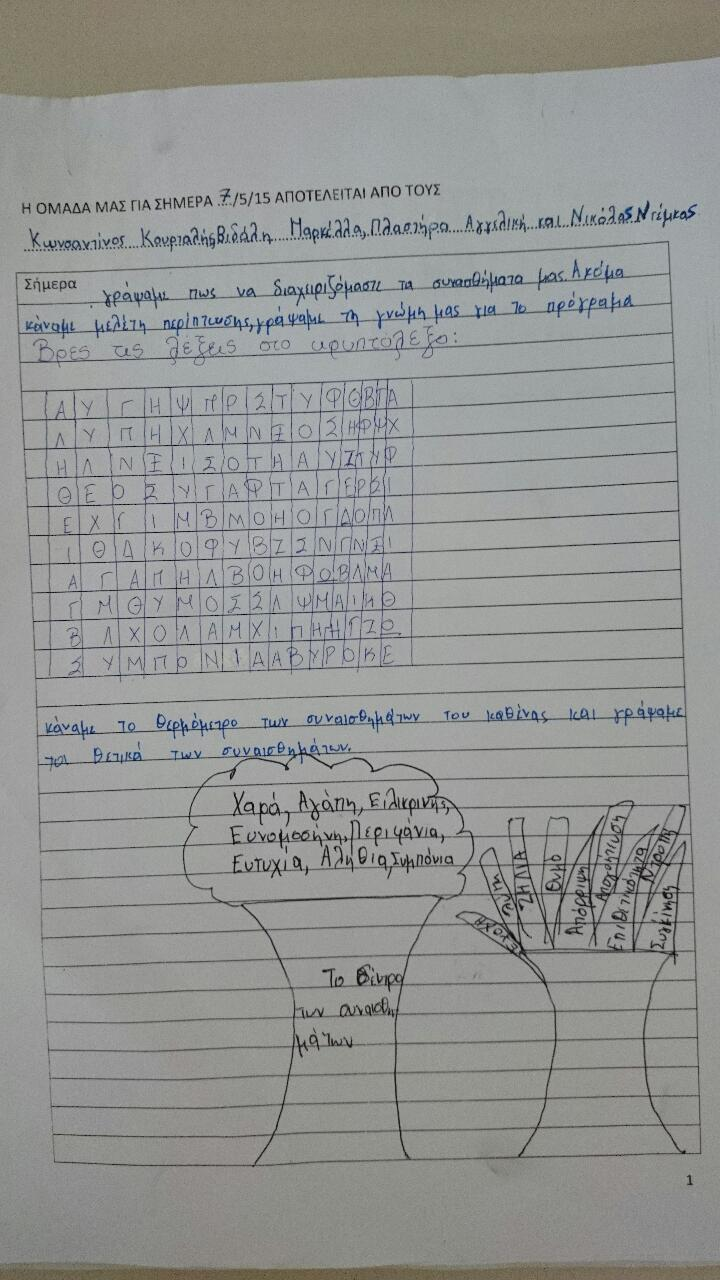 Η ΟΜΑΔΑ ΜΑΣ ΓΙΑ ΣΗΜΕΡΑ 7/5/15 ΑΠΟΤΕΛΕΙΤΑΙ ΑΠΟ ΤΟΥΣ
Κωνσαντίνος Κουρταλής, Βιδάλη Μαρκέλλα, Πλαστήρα Αγγελική και Νικόλας Ντέμκας
Σήμερα γράψαμε πως να διαχειριζόμαστε τα συναισθήματα μας. Ακόμα
κάναμε μελέτη περίπτωσης, γράψαμε τη γνώμη μας για το πρόγραμα
Βρες τις λέξεις στο κρυπτόλεξο:
Α Υ Γ Η Ψ Π Ρ Σ Τ Υ Φ Θ Β Γ Α
Λ Υ Π Η Χ Λ Μ Ν Ξ Ο Σ Η Φ Ψ Χ
Η Λ Ν Ξ Ι Σ Ο Τ Η Α Υ Σ Τ Υ Φ
Θ Ε Ο Σ Υ Γ Α Φ Τ Α Γ Ε Ρ Σ Ι
Ε Χ Γ Ι Μ Β Μ Ο Η Ο Γ Δ Ο Π Λ
Ι Θ Δ Κ Ο Φ Υ Β Ζ Σ Ν Γ Ν Ξ Ι
Α Γ Α Π Η Λ Β Ο Η Φ Ο Β Λ Μ Α
Γ Μ Θ Υ Μ Ο Σ Σ Λ Ψ Μ Α Ι Η Θ
Β Λ Χ Ο Λ Α Μ Χ Ι Π Η Η Γ Ζ Ο
Σ Υ Μ Π Ο Ν Ι Α Α Β Υ Ρ Ο Κ Ε
κάναμε το θερμόμετρο των συναισθημάτων του καθένας και γράψαμε
τα θετικά των συναισθημάτων.
Χαρά, Αγάπη, Ειλικρινής,
Ευνομοσήνη, Περιφάνια,
Ευτυχία, Αλήθια, Συμπόνια
Το δέντρο
των συναισθη
μάτων
λύπη
ΖΗΛΙΑ
Θυμο
Απόρριψη
Απογοήτευση
Επιθετικότητα
Ντροπή
Συγκίνηση
1